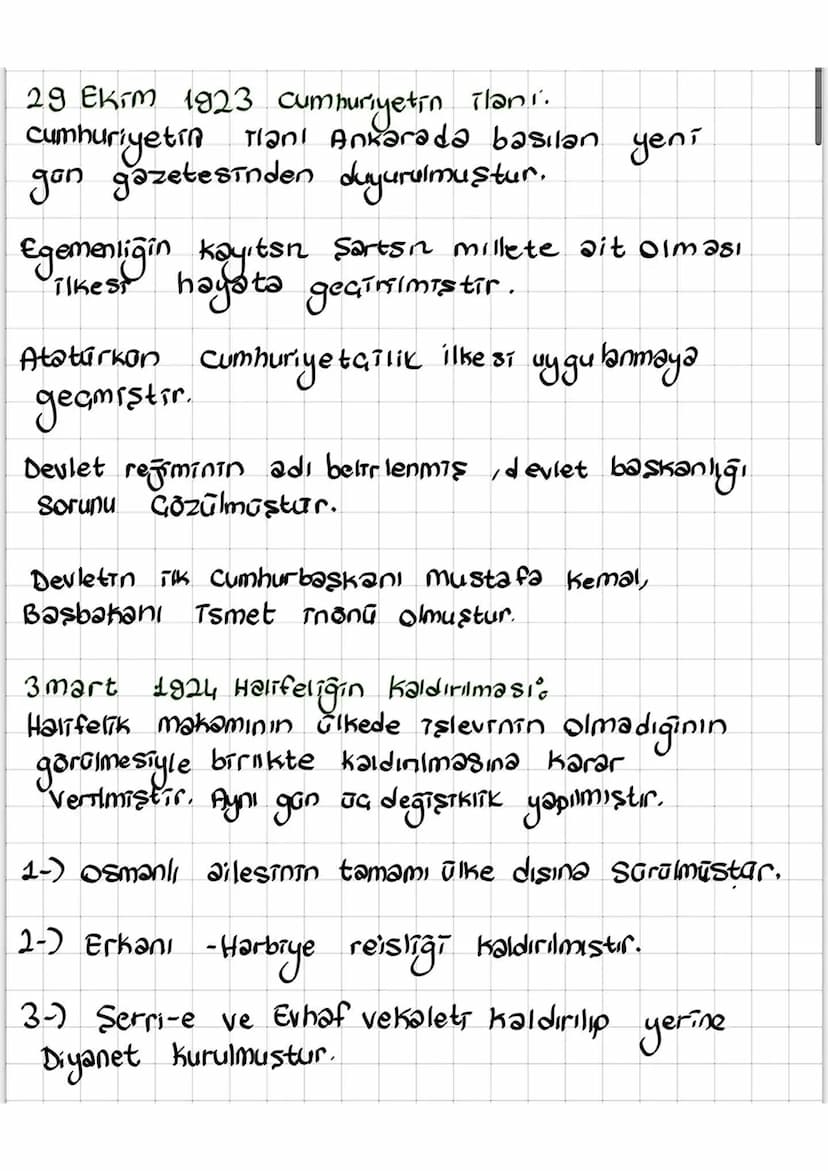 29 Ekim 1923 Cumhuriyetin ilanı.
Cumhuriyetin ilanı Ankarada basılan yeni
gün gazetesinden duyurulmuştur.
Egemenliğin kayıtsız Şartsız millete ait olması
ilkesi hayata geçirilmiştir.
Atatürkün Cumhuriyetçilik ilkesi uygulanmaya
geçmiştir.
Devlet rejiminin adı belirlenmiş, devlet başkanlığı
Sorunu Çözülmüştür.
Devletin ilk Cumhurbaşkanı Mustafa Kemal,
Başbakanı İsmet İnönü olmuştur.
3 mart 1924 Halifeliğin Kaldırılması:
Halifelik makamının ülkede işlevinin olmadığının
görülmesiyle birlikte kaldırılmasına karar
verilmiştir. Aynı gün üç değişiklik yapılmıştır.
1-) Osmanlı ailesinin tamamı ülke dışına sürülmüştür.
2-) Erkanı -Harbiye reisliği kaldırılmıştır.
3-) Şerri-e ve Evkaf vekaleti kaldırılıp yerine
Diyanet kurulmuştur.